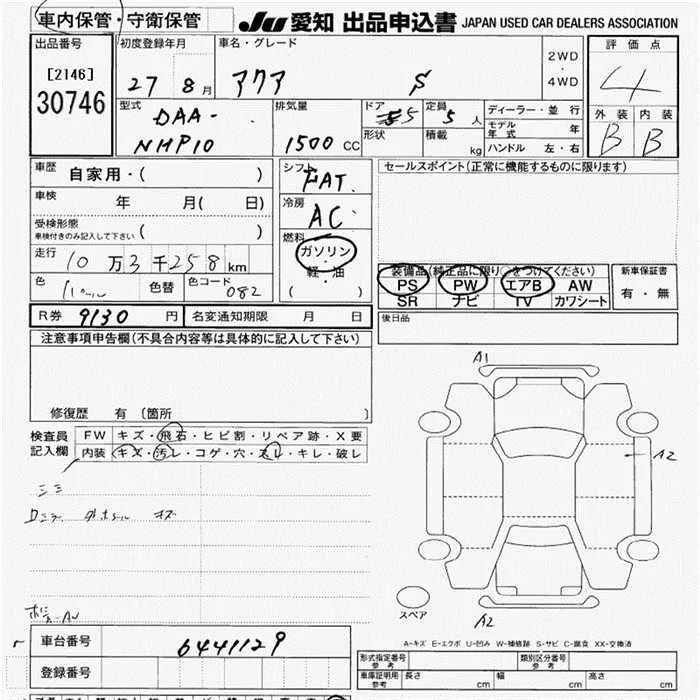 車内保管・守衛保管
JU 愛知 出品申込書 JAPAN USED CAR DEALERS ASSOCIATION
出品番号 初度登録年月 車名・グレード 2WD・4WD 評価点
[2146] 30746 27 8月 アクア S 4
型式 DAA-NHP10 排気量 1500 CC ドア 5 定員 5人 ディーラー・並行 外装 内装
形状 積載 kg モデル年式 年 B B
ハンドル 左・右
車歴 自家用・( ) シフト FAT セールスポイント(正常に機能するものに限ります)
車検 年 月( 日) 冷房 AC
受検形態 車検付きのみ記入して下さい ( ) 燃料 ガソリン・軽・油 ( )
走行 10万3千258km 装備品(純正品に限り○をつけてください) 新車保証書
色 色替 色コード 082 PS PW エアB AW 有・無
SR ナビ TV カワシート
R券 9130円 名変通知期限 月 日 後日品
注意事項申告欄(不具合内容等は具体的に記入して下さい)
修復歴 有 〔箇所 〕
検査員記入欄 FW キズ・飛石・ヒビ割・リペア跡・X要
内装 キズ・汚レ・コゲ・穴・スレ・キレ・破レ
A1
A2
スペア A2
車台番号 6441129
A-キズ E-エクボ U-凹み W-補修跡 S-サビ C-腐食 XX-交換済
登録番号 形式指定番号 参考 類別区分番号 参考
車庫証明用 参考 長さ cm 幅 cm 高さ cm